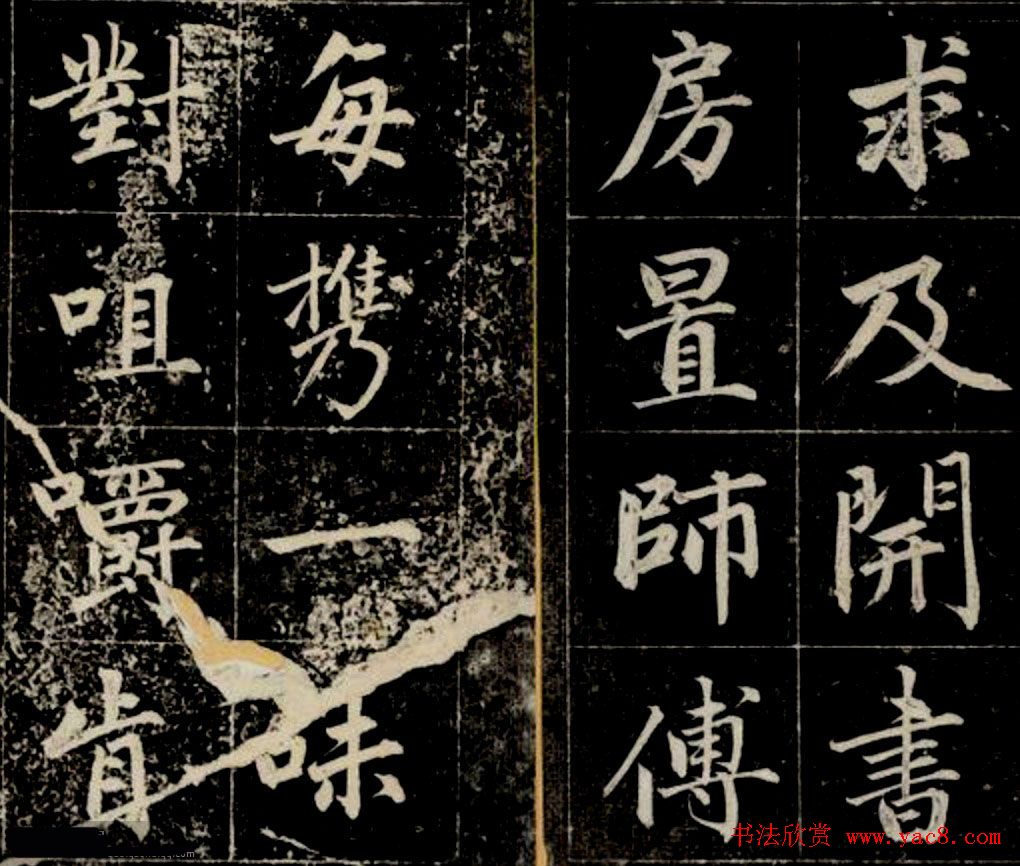 求及開書
房置師傅
每携一味
對咀嚼肯
书法欣赏 www.yac8.com